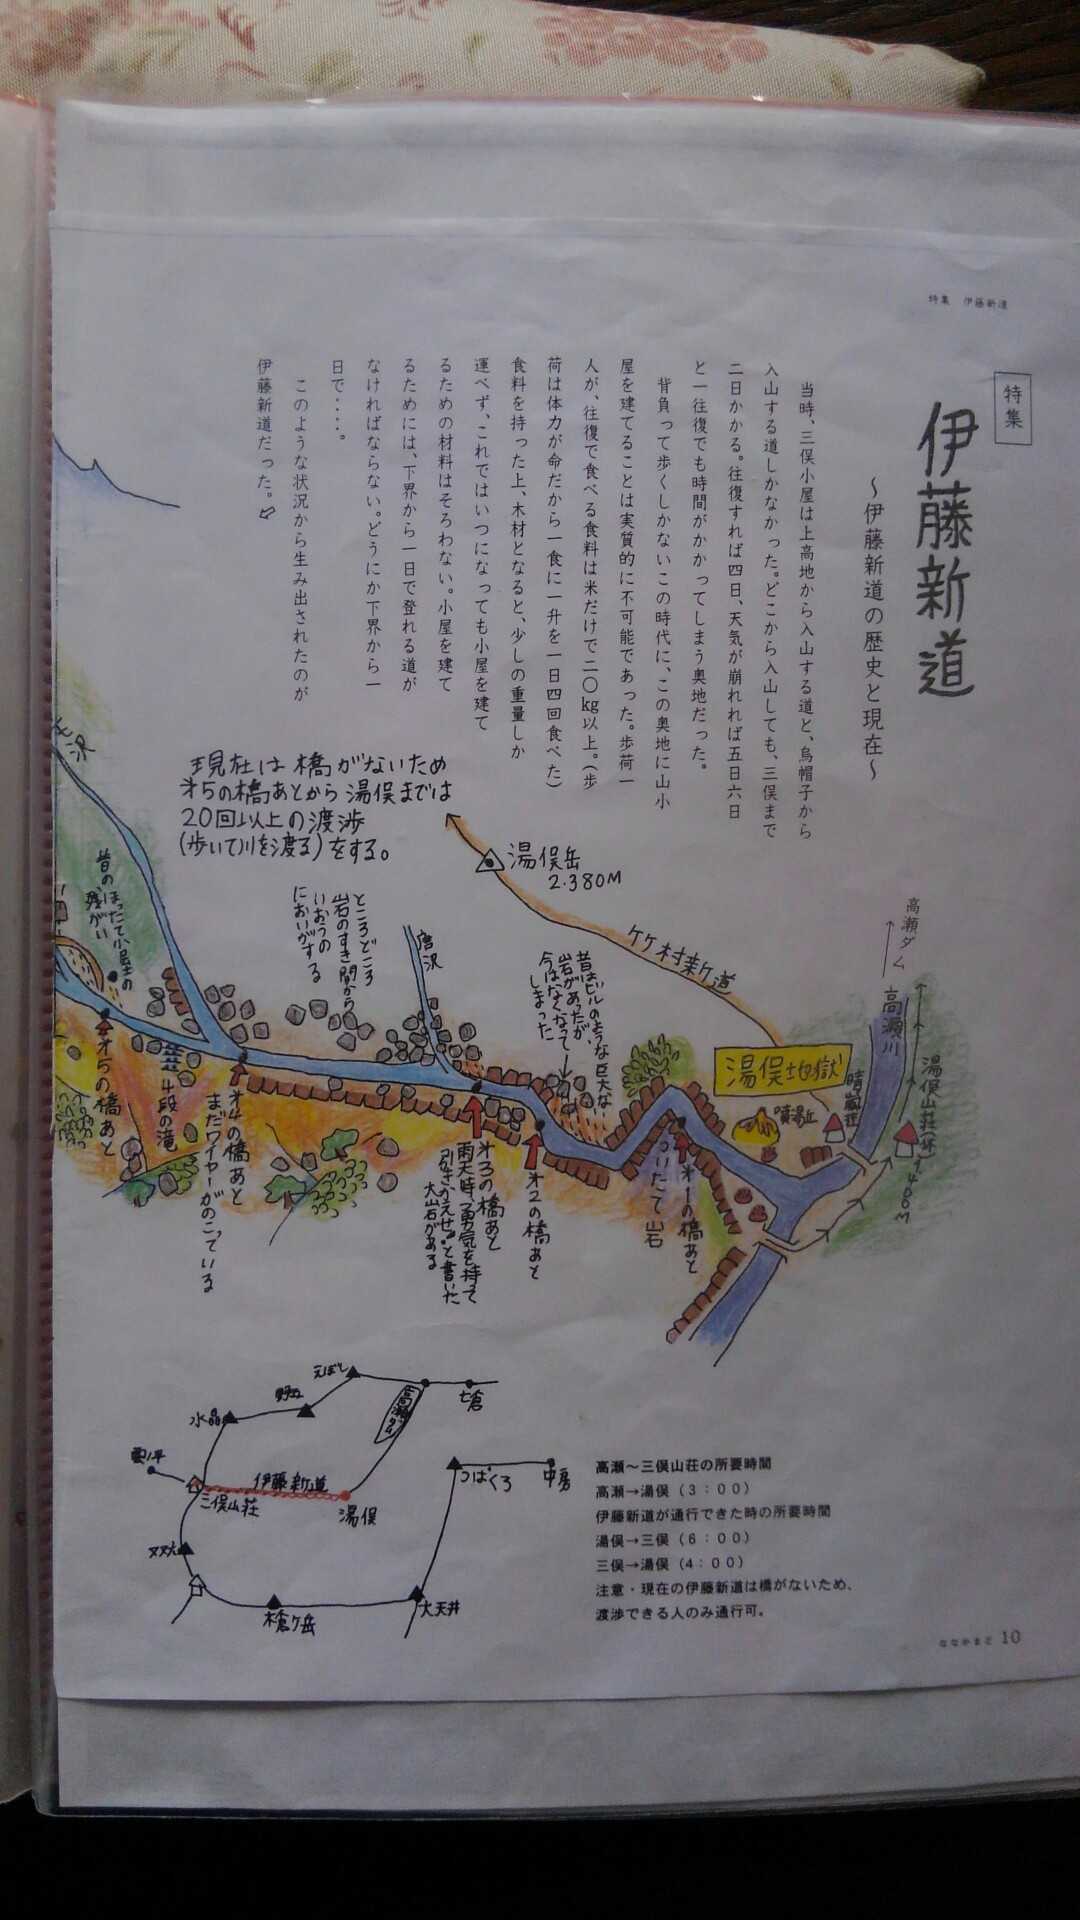 特集 伊藤新道
特集
伊藤新道
～伊藤新道の歴史と現在～
当時、三俣小屋は上高地から入山する道と、烏帽子から
入山する道しかなかった。どこから入山しても、三俣まで
二日かかる。往復すれば四日、天気が崩れれば五日六日
と一往復でも時間がかかってしまう奥地だった。
背負って歩くしかないこの時代に、この奥地に山小
屋を建てることは実質的に不可能であった。歩荷一
人が、往復で食べる食料は米だけで二〇kg以上。（歩
荷は体力が命だから一食に一升を一日四回食べた）
食料を持った上、木材となると、少しの重量しか
運べず、これではいつになっても小屋を建て
るための材料はそろわない。小屋を建て
るためには、下界から一日で登れる道が
なければならない。どうにか下界から一
日で・・・・。
このような状況から生み出されたのが
伊藤新道だった。
現在は橋がないため
オ5の橋あとから湯俣までは
20回以上の渡渉
(歩いて川を渡る)をする。
湯俣岳
2.380M
竹村新道
高瀬ダム
高瀬川
湯俣山荘(休)
晴嵐荘
湯俣地獄
噴湯丘
昔はビルのような巨大な
岩があったが、
今はなくなって
しまった
唐沢
ところどころ
岩のすき間から
いおうの
においがする
昔のほったて小屋の
残がい
オ1の橋あと
ついたて岩
オ2の橋あと
オ3の橋あと
雨天時“勇気を持って
引きかえせ”と書いた
大岩がある
オ4の橋あと
まだワイヤーがのこっている
4段の滝
オ5の橋あと
えぼし
野口
水晶
雲ノ平
三俣山荘
伊藤新道
湯俣
高瀬ダム
七倉
双六
槍ケ岳
大天井
つばくろ
中房
高瀬～三俣山荘の所要時間
高瀬→湯俣（３：００）
伊藤新道が通行できた時の所要時間
湯俣→三俣（６：００）
三俣→湯俣（４：００）
注意・現在の伊藤新道は橋がないため、
渡渉できる人のみ通行可。
ななかまど 10